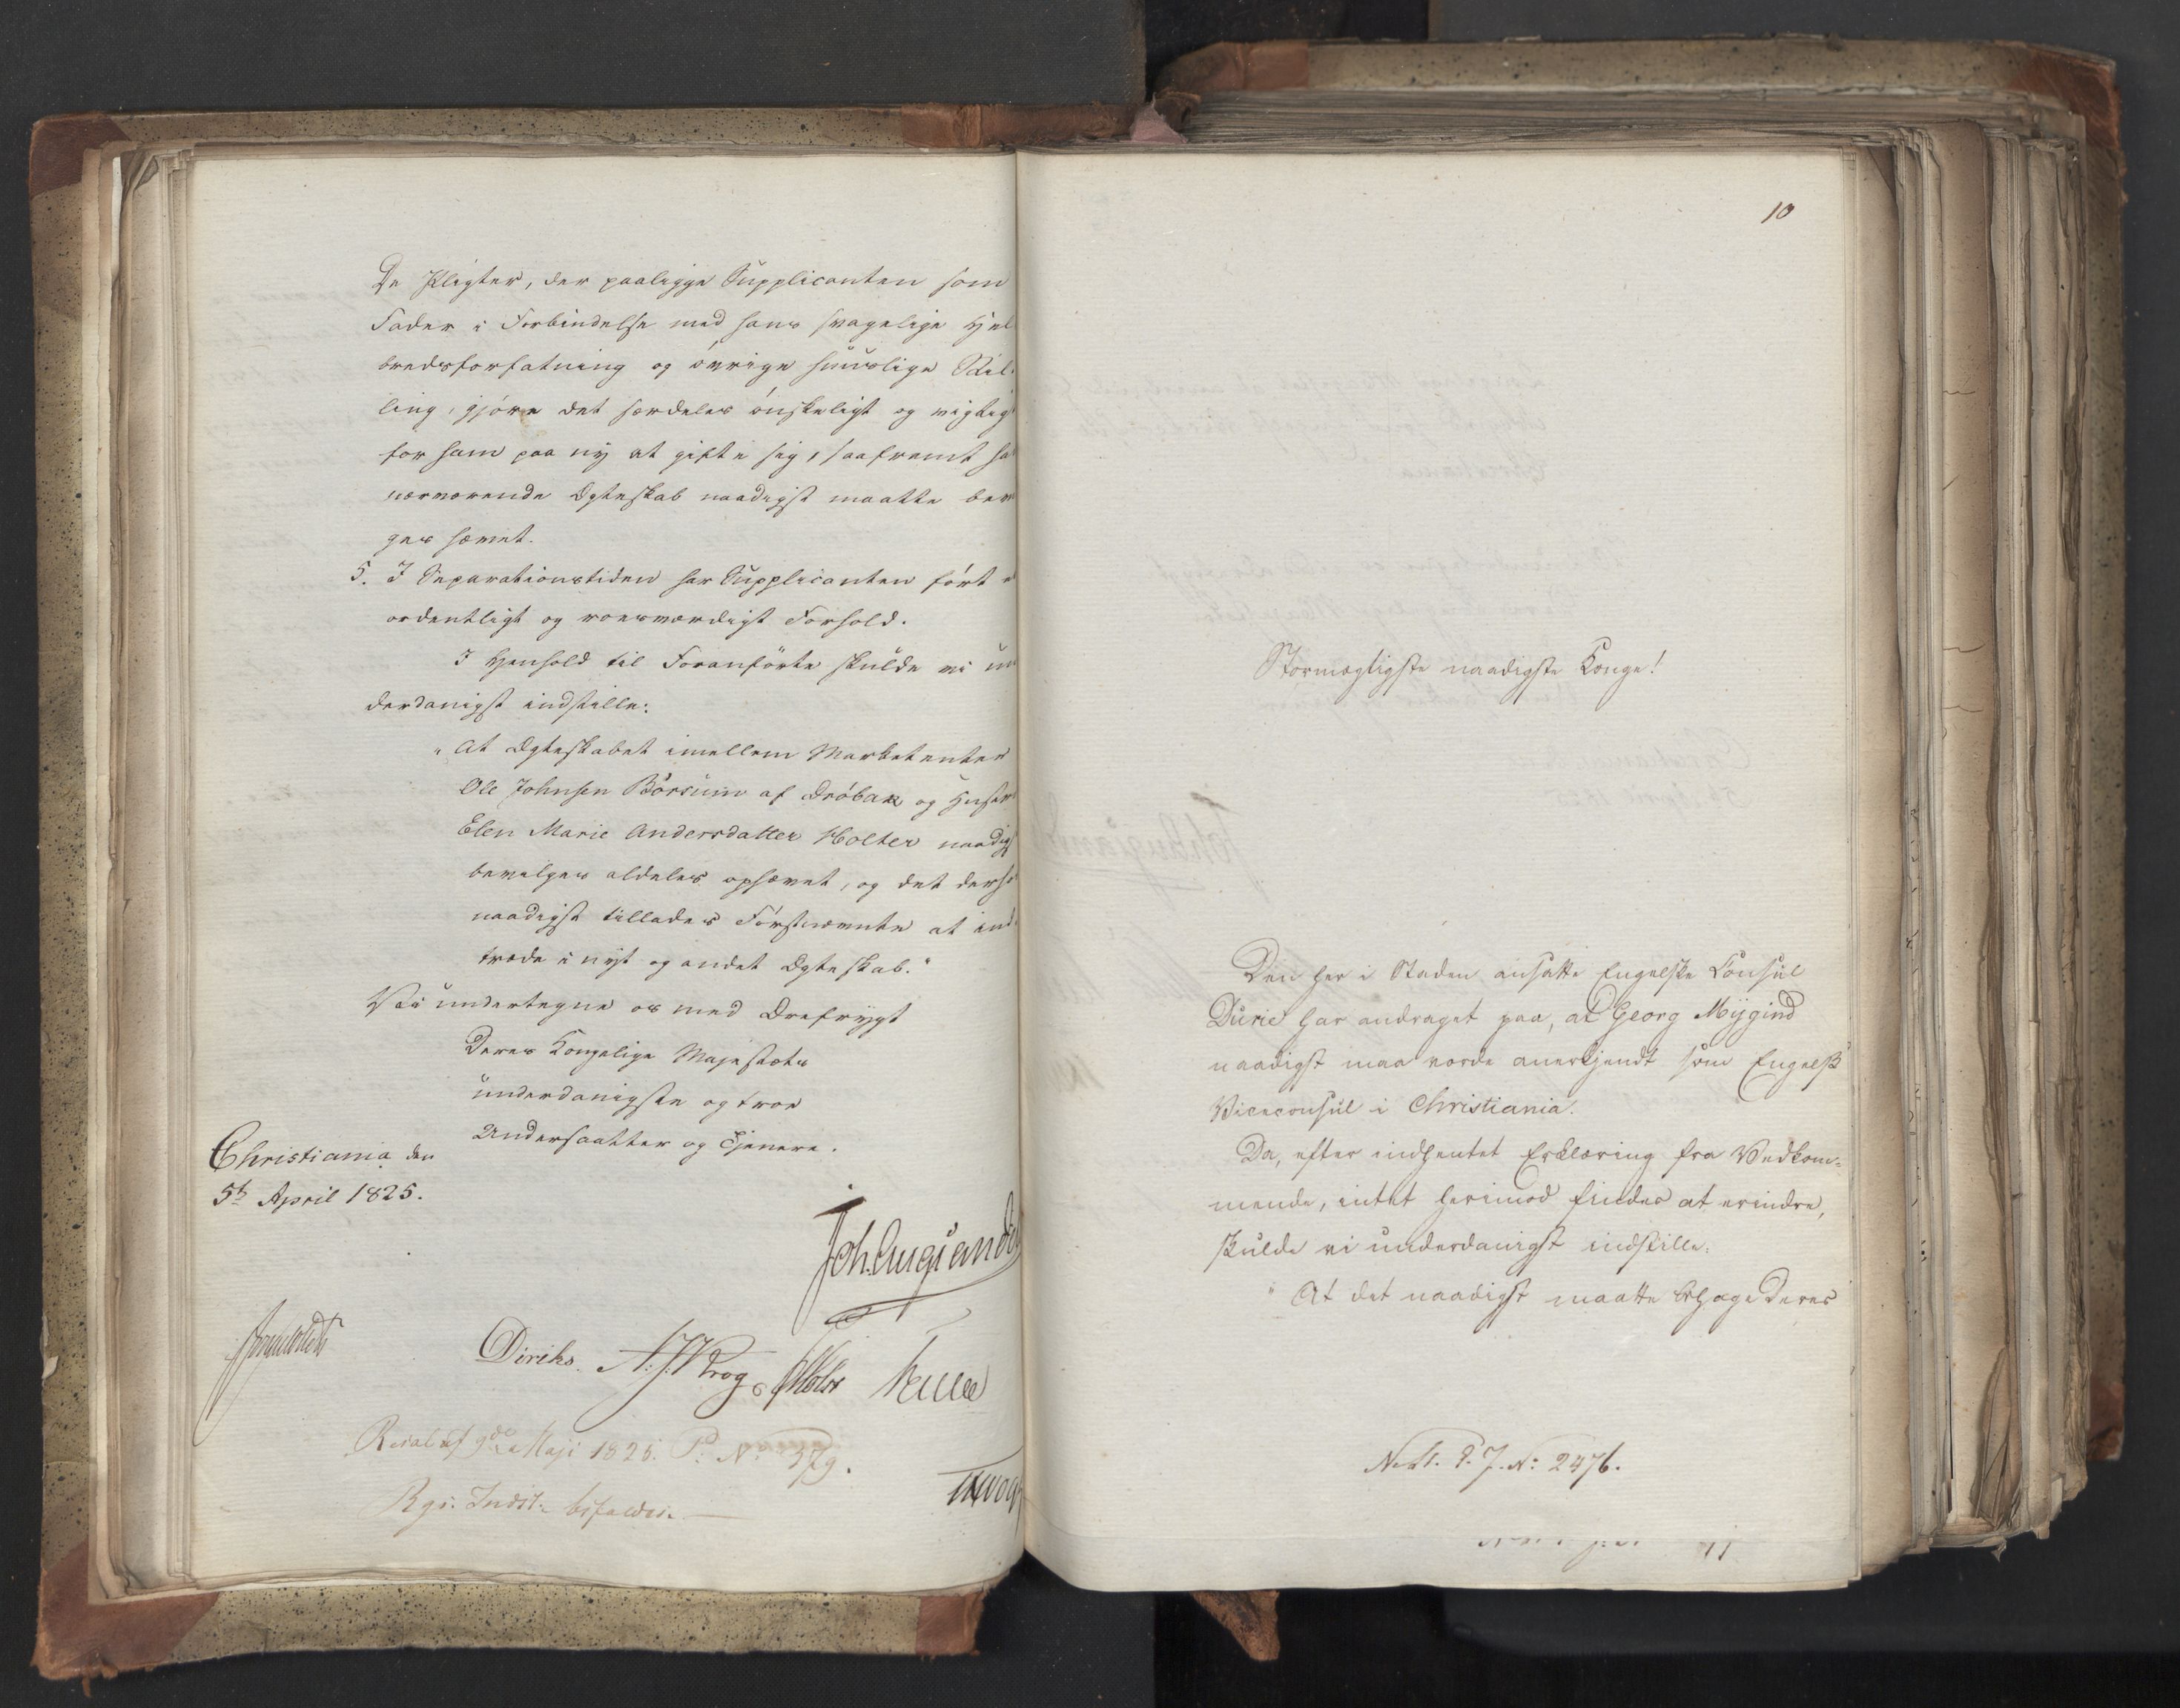 De Pligter, der paaligge Supplicanten som
Fader i Forbindelse med hans svagelige Hel
bredsforfatning og övrige huuslige Stil-
ling, gjöre det særdeles önskeligt og vigtig
for ham paa ny at gifte sig, saafremt ha
nærværende Ægteskab naadigst maatte bev
ges hævet.
5. I Separationstiden har Supplicanten fört e
ordentligt og roesværdigt Forhold.
I Henhold til Foranförte skulde vi un
derdanigst indstille:
"At Ægteskabet imellem Marketenter
Ole Johnsen Börsum af Dröbak og Hustru
Elen Marie Andersdatter Holter naadigst
bevilges aldeles ophævet, og det derho
naadigst tillades Förstnævnte at ind-
træde i nyt og andet Ægteskab."
Vi undertegne os med Ærefrygt
Deres Kongelige Majestæts
underdanigste og troe
Undersaatter og Tjenere.
Christiania den
5te April 1825.
Diriks. Krog
Resol. af 9de Maji 1825. P: No 379.
Rgs. Indst. bifaldes.
10
Stormægtigste naadigste Konge!
Den her i Staden ansatte Engelske Consul
Durie har andraget paa, at Georg Mygind
naadigst maa vorde anerkjendt som Engelsk
Viceconsul i Christiania.
Da, efter indhentet Erklæring fra Vedkom-
mende, intet herimod findes at erindre,
skulde vi underdanigst indstille:
"At det naadigst maatte behage Deres
J. No: 2476.